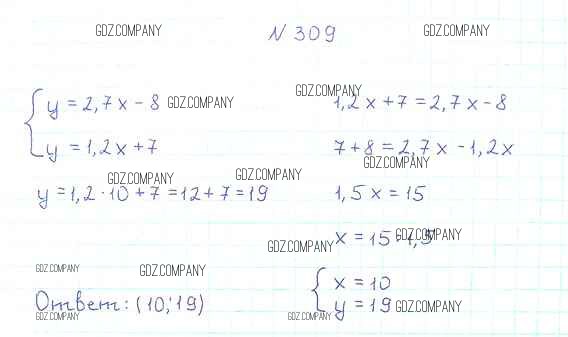 GDZ.COMPANY № 309 GDZ.COMPANY
GDZ.COMPANY
{ y = 2,7x - 8 GDZ.COMPANY 1,2x + 7 = 2,7x - 8
y = 1,2x + 7 7 + 8 = 2,7x - 1,2x
GDZ.COMPANY
GDZ.COMPANY GDZ.COMPANY
y = 1,2 · 10 + 7 = 12 + 7 = 19 1,5x = 15
x = 15 : 1,5 GDZ.COMPANY
GDZ.COMPANY
GDZ.COMPANY GDZ.COMPANY { x = 10
Ответ: (10; 19) y = 19 GDZ.COMPANY
GDZ.COMPANY GDZ.COMPANY